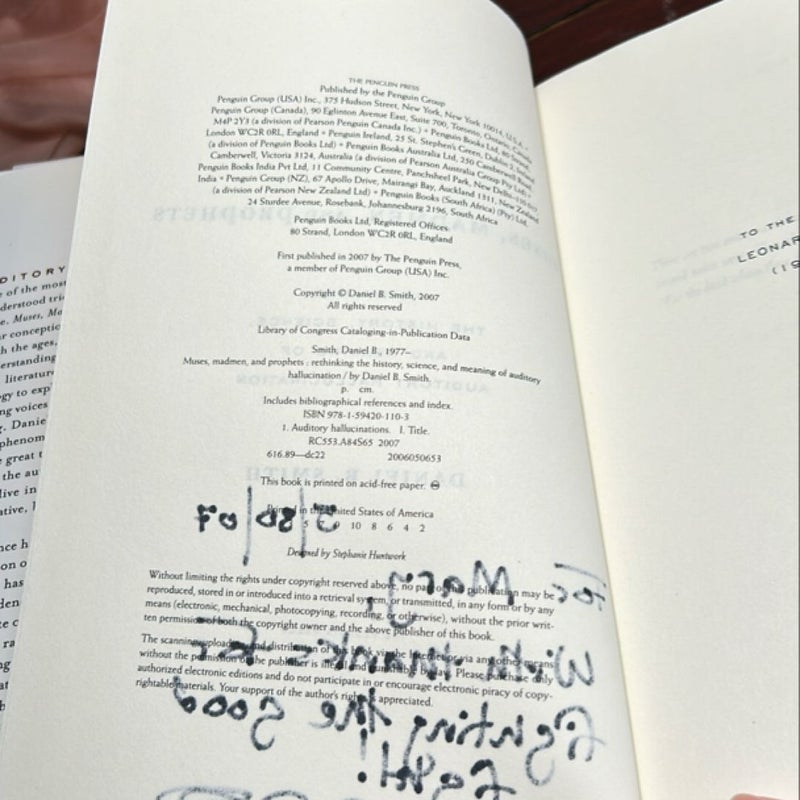 THE PENGUIN PRESS
Published by the Penguin Group
Penguin Group (USA) Inc., 375 Hudson Street, New York, New York 10014, U.S.A. •
Penguin Group (Canada), 90 Eglinton Avenue East, Suite 700, Toronto, Ontario, Canada
M4P 2Y3 (a division of Pearson Penguin Canada Inc.) • Penguin Books Ltd, 80 Strand,
London WC2R 0RL, England • Penguin Ireland, 25 St. Stephen's Green, Dublin 2, Ireland
(a division of Penguin Books Ltd) • Penguin Books Australia Ltd, 250 Camberwell Road,
Camberwell, Victoria 3124, Australia (a division of Pearson Australia Group Pty Ltd) •
Penguin Books India Pvt Ltd, 11 Community Centre, Panchsheel Park, New Delhi–110 017
India • Penguin Group (NZ), 67 Apollo Drive, Mairangi Bay, Auckland 1311, New Zealand
(a division of Pearson New Zealand Ltd) • Penguin Books (South Africa) (Pty) Ltd,
24 Sturdee Avenue, Rosebank, Johannesburg 2196, South Africa
Penguin Books Ltd, Registered Offices
80 Strand, London WC2R 0RL, England
First published in 2007 by The Penguin Press,
a member of Penguin Group (USA) Inc.
Copyright © Daniel B. Smith, 2007
All rights reserved
Library of Congress Cataloging-in-Publication Data
Smith, Daniel B., 1977–
Muses, madmen, and prophets : rethinking the history, science, and meaning of auditory
hallucination / by Daniel B. Smith.
p. cm.
Includes bibliographical references and index.
ISBN 978-1-59420-110-3
1. Auditory hallucinations. I. Title.
RC553.A84S65 2007
616.89—dc22 2006050653
This book is printed on acid-free paper. ♾
Printed in the United States of America
10 8 6 4 2
Designed by Stephanie Huntwork
Without limiting the rights under copyright reserved above, no part of this publication may be
reproduced, stored in or introduced into a retrieval system, or transmitted, in any form or by any
means (electronic, mechanical, photocopying, recording, or otherwise), without the prior writ-
ten permission of both the copyright owner and the above publisher of this book.
The scanning, uploading and distribution of this book via the Internet or via any other means
without the permission of the publisher is illegal and punishable by law. Please purchase only
authorized electronic editions and do not participate in or encourage electronic piracy of copy-
rightable materials. Your support of the author's rights is appreciated.
For Mary,
With thanks for
fighting the good
fight!
TO THE
DITORY
of the most